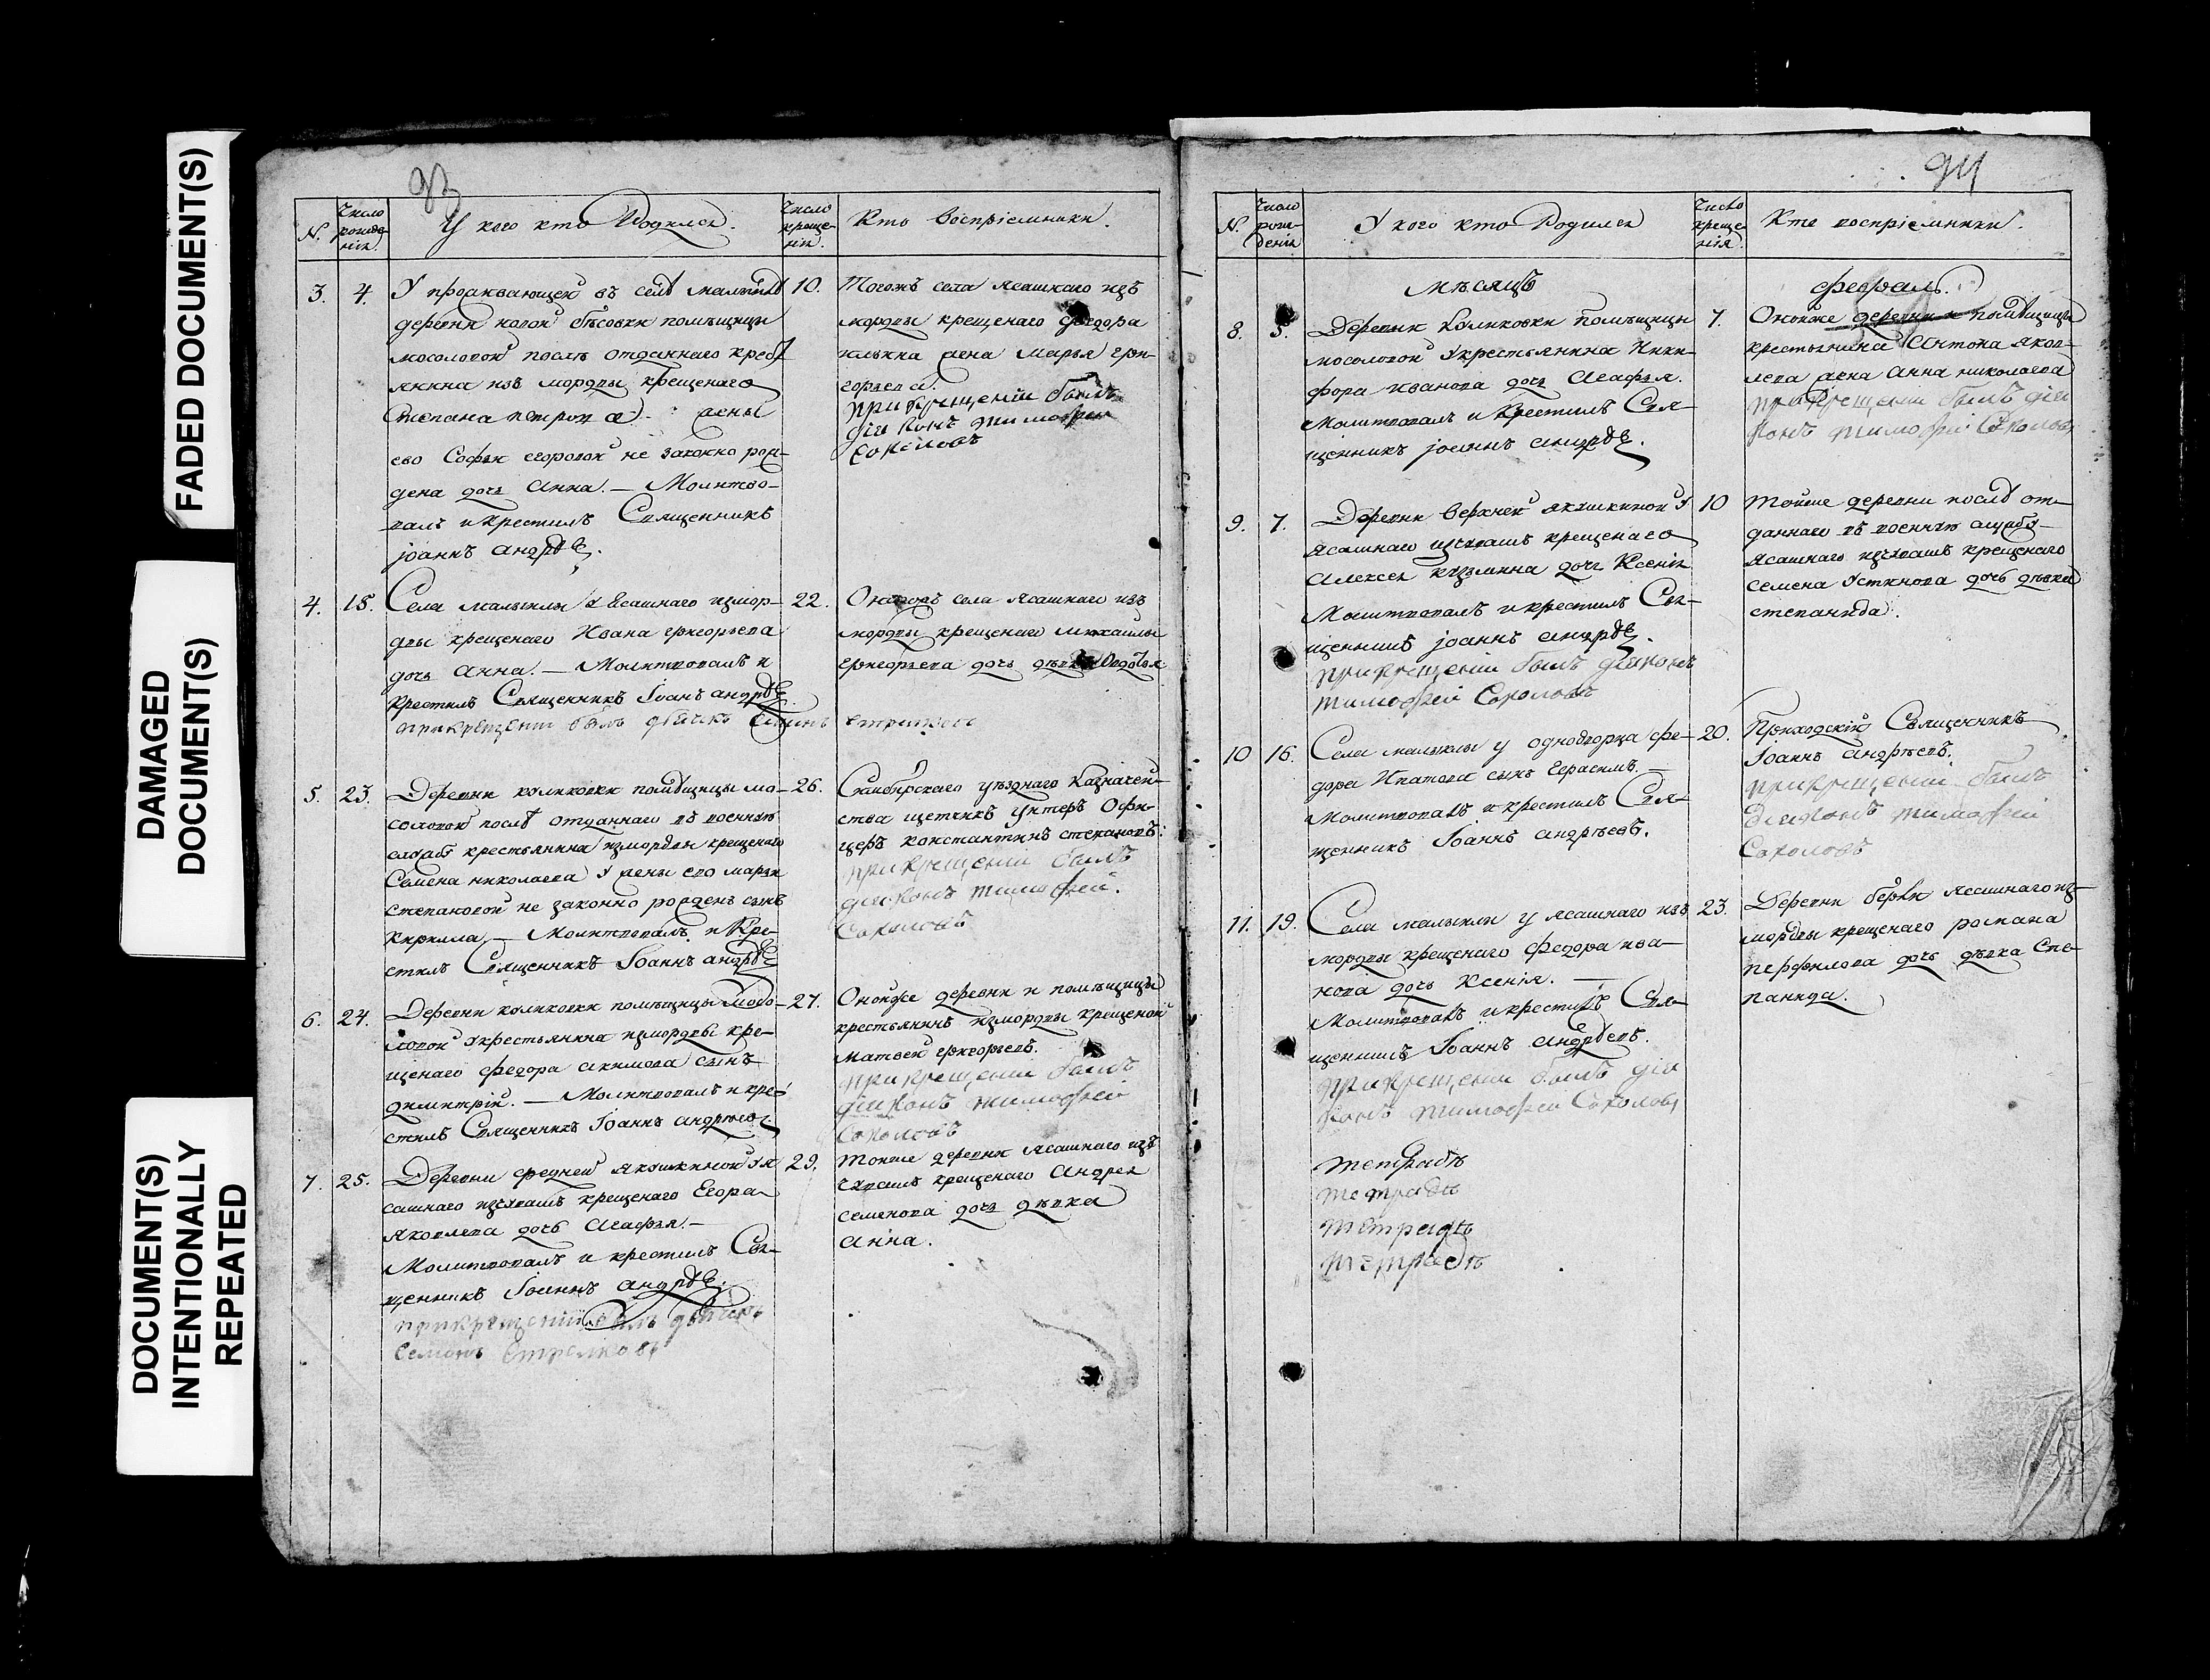 FADED DOCUMENT(S)
DAMAGED
DOCUMENT(S)
DOCUMENT(S)
INTENTIONALLY
REPEATED
93
N.
Число рожденія
У кого кто Родился.
Число крещенія.
Кто воспріемники.
3. 4.
У проживающей въ селѣ
деревни помѣщицы
Мосоловой послѣ отданнаго
изъ мордвы крещенаго
Степана Петрова жены
ево Софьи Егоровой не законно рож-
дена дочь Анна. — Молитво-
валъ и крестилъ Священникъ
Іоаннъ Андрѣе
10.
Тогожъ села ясашнаго изъ
мордвы крещенаго Федора
Ильина жена Марья Гри-
горьева.
при крещеніи былъ
діаконъ Тимофей
Соколовъ
4. 15.
Села Малыклы у Есашнаго измор-
двы крещенаго Ивана Григорьева
дочь Анна. — Молитвовалъ и
крестилъ Священникъ Іоанъ Андрѣе
при крещеніи былъ дьячикъ
22.
села ясашнаго изъ
мордвы крещенаго Михайлы
Григорьева дочь дѣвка
5. 23.
Деревни Куликовки помѣщицы Мо-
соловой послѣ отданнаго въ военную
службу крестьянина измордвы крещенаго
Семена Николаева у жены его Марьи
Степановой не законно рожденъ сынъ
Кирилла — Молитвовалъ и Кре-
стилъ Священникъ Іоаннъ Андрѣе
26.
Симбирскаго уѣзднаго Казначей-
ства щетчикъ Унтеръ Офи-
церъ Константинъ Степановъ.
при крещеніи былъ
діаконъ Тимофей.
Соколовъ
6. 24.
Деревни Куликовки помѣщицы Мосо-
ловой у крестьянина измордвы кре-
щенаго Федора Акимова сынъ
Димитрій. — Молитвовалъ и кре-
стилъ Священникъ Іоаннъ Андрѣе
27.
Оной же деревни и помѣщицы
крестьянинъ измордвы крещеной
Матвей Григорьевъ.
при крещеніи былъ
діаконъ Тимофей
Соколовъ
7. 25.
Деревни Средней Якушкиной у я
сашнаго изчювашъ крещенаго Егора
Яковлева дочь Агафья. —
Молитвовалъ и крестилъ Свя-
щенникъ Іоаннъ Андрѣе.
при крещеніи былъ дьячикъ
Семенъ Стрелковъ
29.
Тойже деревни ясашнаго изъ
чувашъ крещенаго Андрея
Семенова дочь дѣвка
Анна.
94
N.
Число рожденія
У кого кто Родился
Число крещенія.
Кто воспріемники.
мѣсяцъ
февраль.
8. 5.
Деревни Куликовки помѣщицы
Мосоловой у крестьянина Ники-
фора Иванова дочь Агафья.
Молитвовалъ и крестилъ Свя-
щенникъ Іоаннъ Андрѣе.
7.
Онойже деревни и помѣщицы
крестьянина Антона Яков-
лева жена Анна Николаева
при крещеніи былъ діа
конъ Тимофей Соколовъ
9. 7.
Деревни Верхней Якушкиной у
ясашнаго изчювашъ крещенаго
Алексея Кузмина дочь Ксенія
Молитвовалъ и крестилъ Свя-
щенникъ Іоаннъ Андрѣе.
при крещеніи былъ діаконъ
Тимофей Соколовъ
10
Тойже деревни послѣ от-
даннаго въ военную службу
ясашнаго изчювашъ крещенаго
Семена Устинова дочь дѣвка
Степанида.
10 16.
Села Малыклы у однодворца Фе-
дора Ипатова сынъ Герасимъ. —
Молитвовалъ и крестилъ Свя-
щенникъ Іоаннъ Андрѣевъ.
20.
Приходскій Священникъ
Іоаннъ Андрѣевъ.
при крещеніи былъ
діаконъ Тимофей
Соколовъ
11. 19.
Села Малыклы у ясашнаго изъ
мордвы крещенаго Федора Ива-
нова дочь Ксенія. —
Молитвовалъ и крестилъ Свя-
щенникъ Іоаннъ Андрѣевъ.
при крещеніи былъ діа
конъ Тимофей Соколовъ
23.
Деревни ясашнаго из-
мордвы крещенаго Романа
Перфилова дочь дѣвка Сте-
панида.
тетрадь
тетрадь
тетрадь
тетрадь